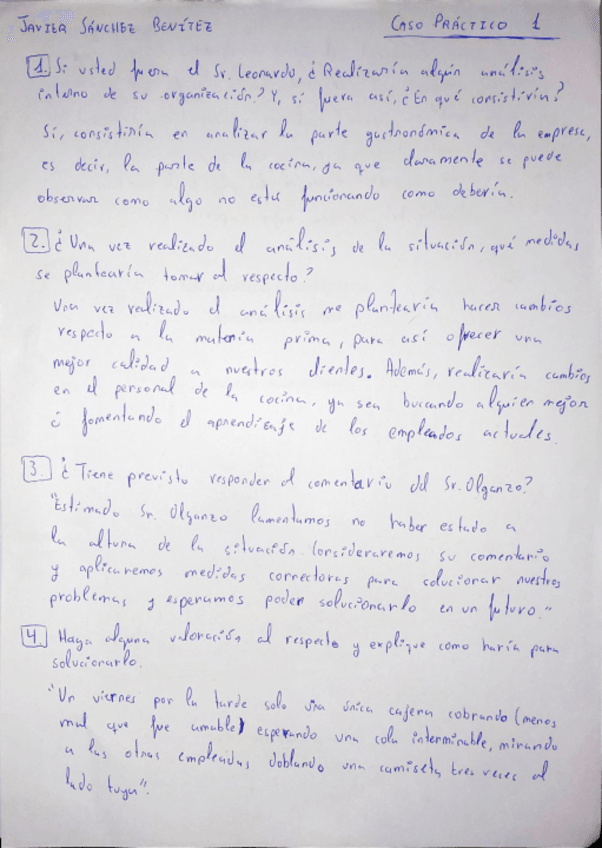 JAVIER SÁNCHEZ BENÍTEZ
CASO PRÁCTICO 1
1. Si usted fuera el Sr. Leonardo, ¿Realizaría algún análisis
interno de su organización? Y, si fuera así, ¿En qué consistiría?
Sí, consistiría en analizar la parte gastronómica de la empresa,
es decir, la parte de la cocina, ya que claramente se puede
observar como algo no esta funcionando como debería.
2. ¿Una vez realizado el análisis de la situación, qué medidas
se plantearía tomar al respecto?
Una vez realizado el análisis me plantearía hacer cambios
respecto a la materia prima, para así ofrecer una
mejor calidad a nuestros clientes. Además, realizaría cambios
en el personal de la cocina, ya sea buscando alguien mejor
ó fomentando el aprendizaje de los empleados actuales.
3. ¿Tiene previsto responder al comentario del Sr. Olganzo?
"Estimado Sr. Olganzo lamentamos no haber estado a
la altura de la situación. Consideraremos su comentario
y aplicaremos medidas correctoras para solucionar nuestros
problemas y esperamos poder solucionarlo en un futuro."
4. Haga alguna valoración al respecto y explique como haría para
solucionarlo.
"Un viernes por la tarde solo una única cajera cobrando (menos
mal que fue amable) esperando una cola interminable, mirando
a las otras empleadas doblando una camiseta tres veces al
lado tuya".